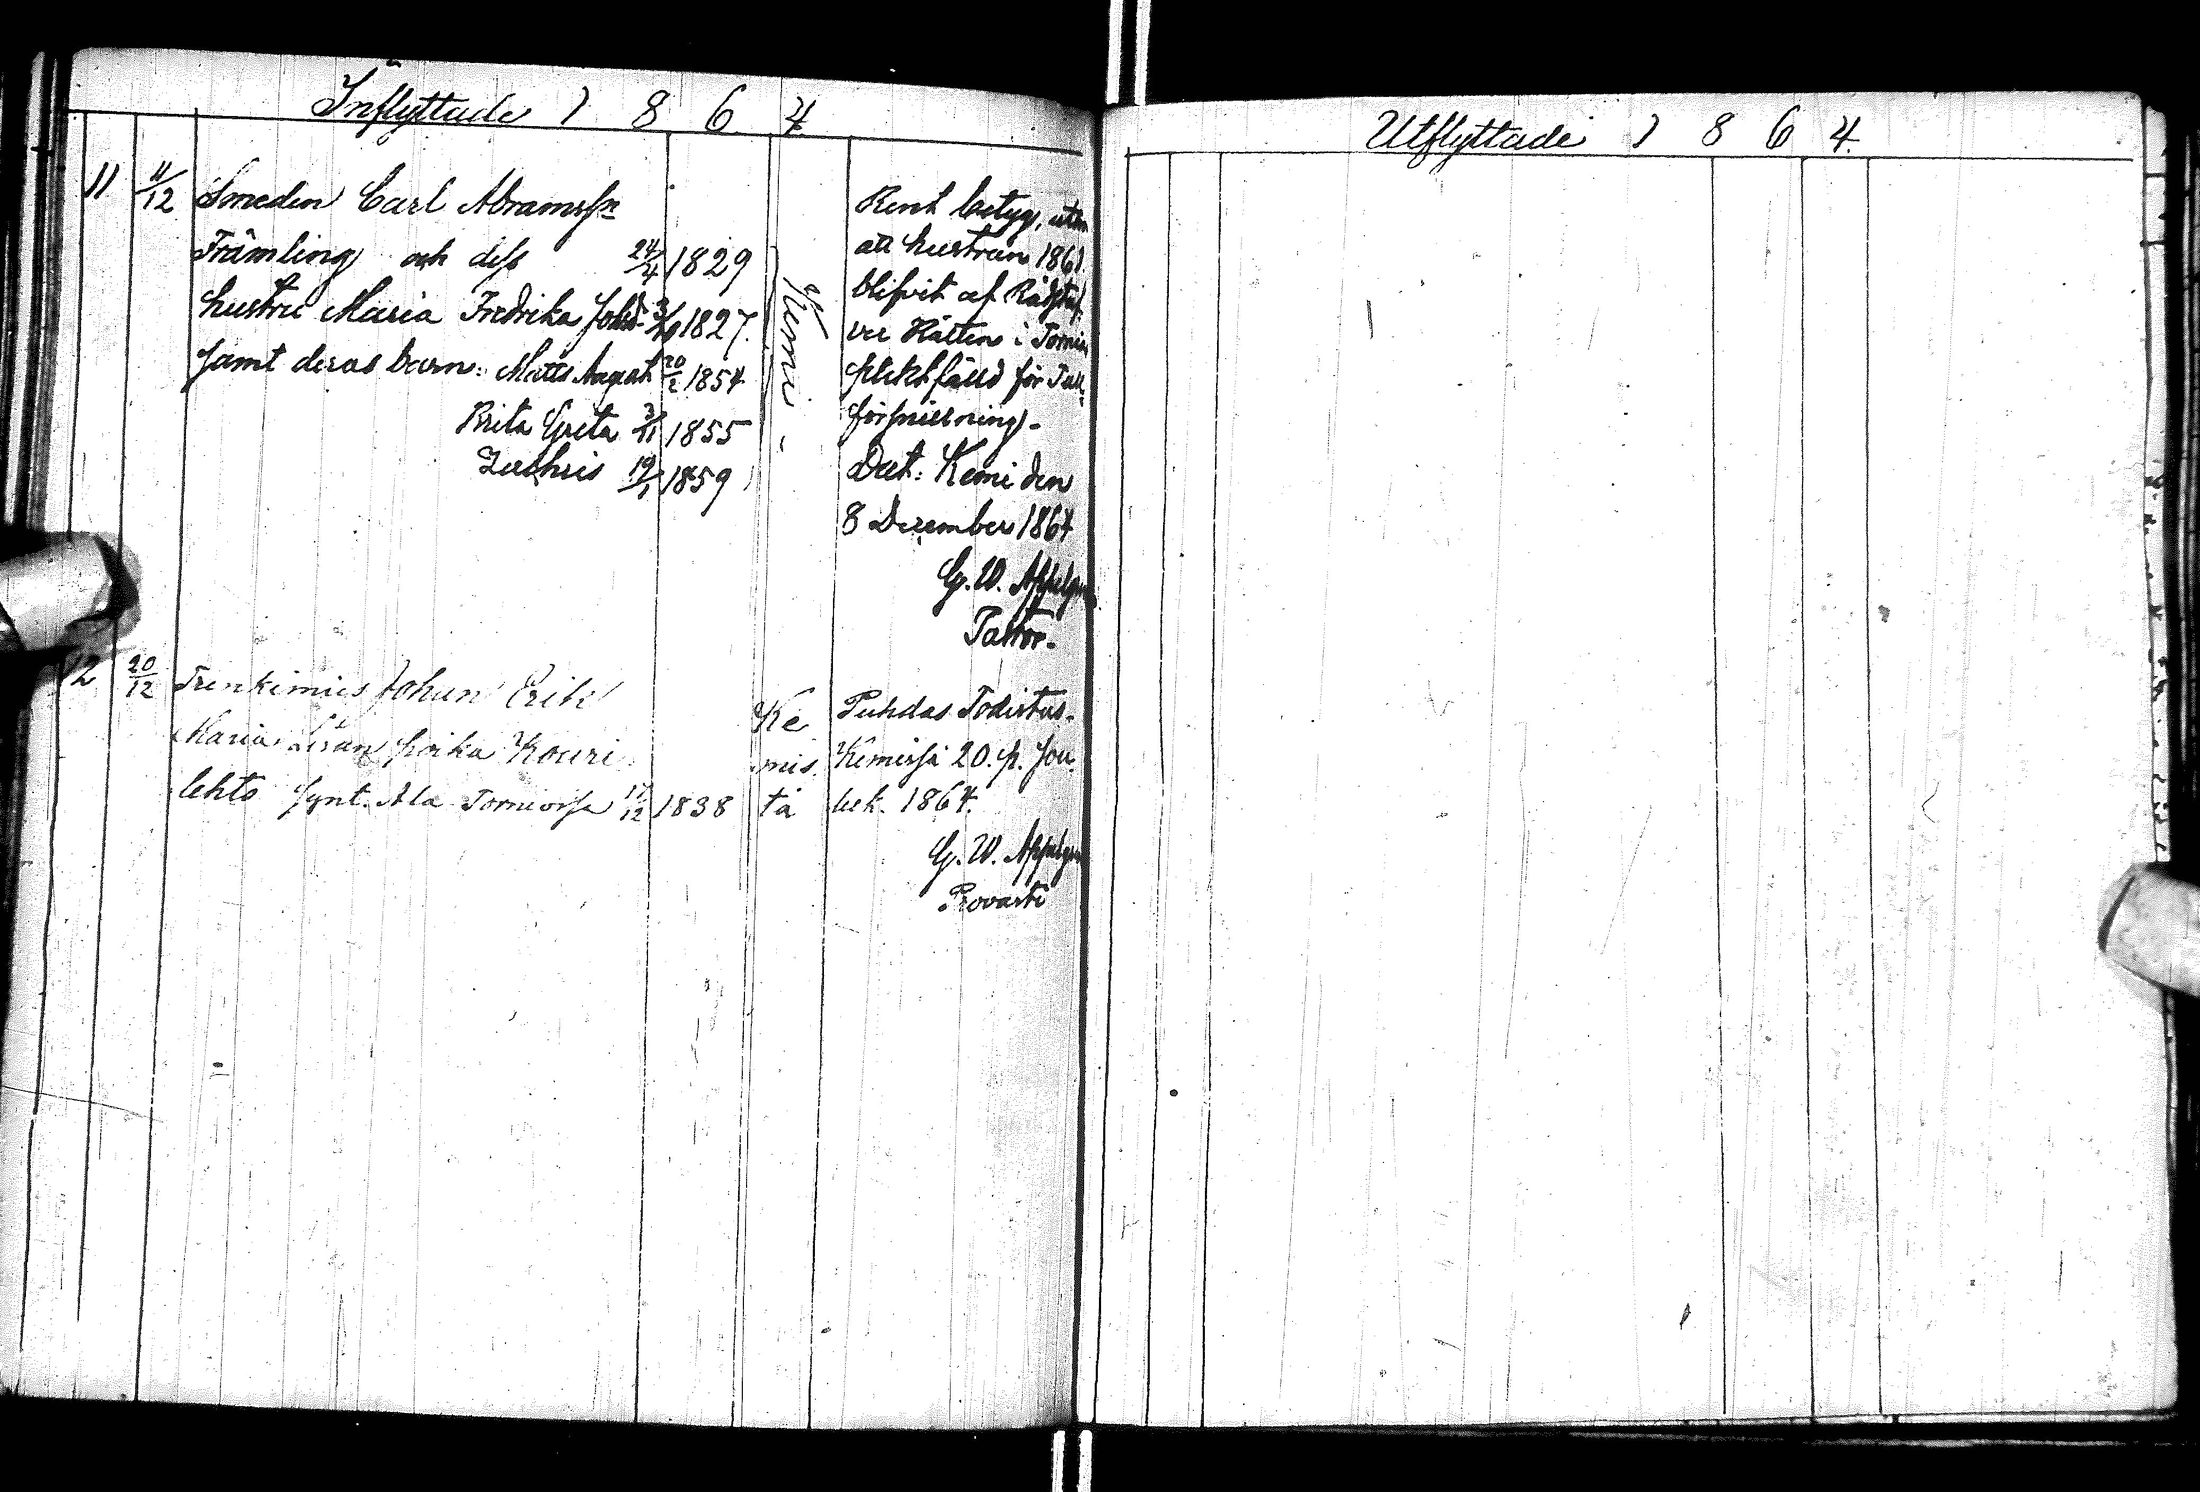 Inflyttade 1 8 6 4.
11 11/12 Smeden Carl Abramssn
Främling och dess 24/4 1829
hustru Maria Fredrika Johsd. 3/10 1827.
samt deras barn: Matts August 20/2 1854
Brita Greta 3/11 1855
Zachris 19/1 1859
Kemi.
Rent betyg, utan
att hustrun 1861
blifvit af Rådstuf.
vu Rätten i Torneå
pliktfälld för Tull
försnillning.
Dat. Kemi den
8 December 1864
G. W. Appelgren
Pastor.
12 20/12 Trenkimies Johan Erik
Maria Lisan poika Kouri
lehto synt. Ala Torniossa 17/12 1838
Ke
mis
tä
Puhdas Todistus.
Kemissä 20. p. Jou
luk. 1864.
G. W. Appelgren
Provasti
Utflyttade 1 8 6 4.